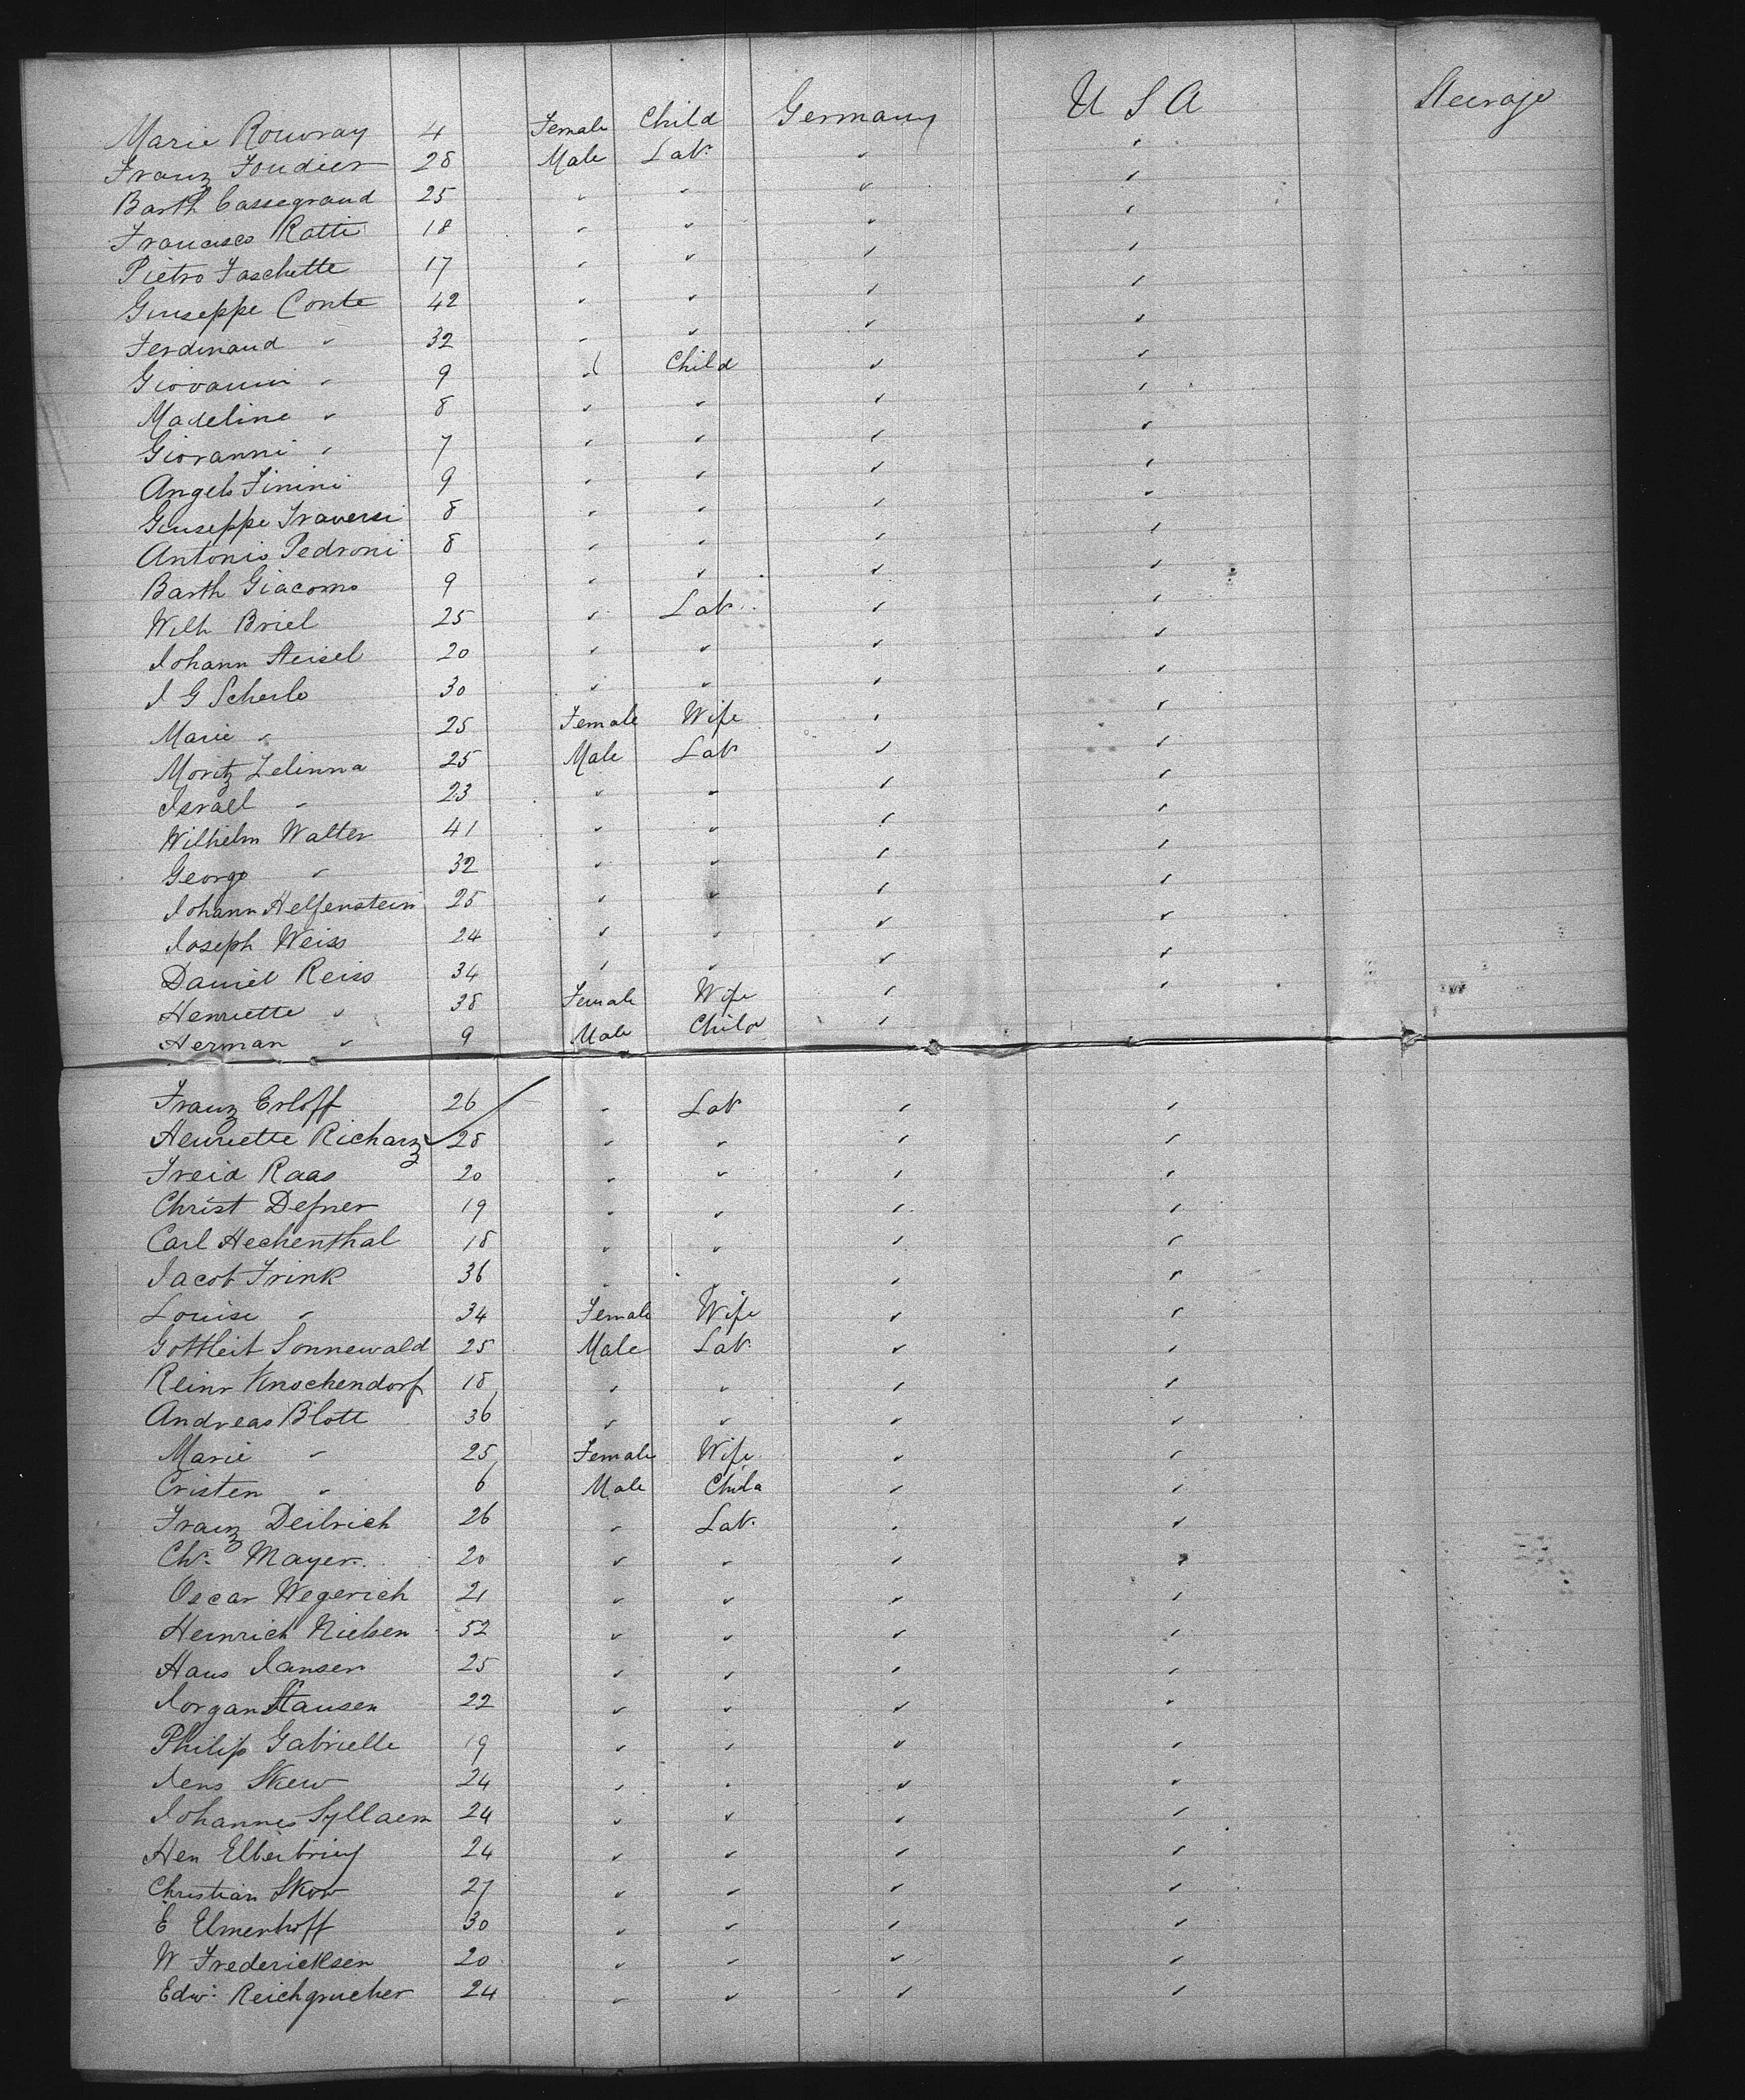 Marie Rouvray 4 Female Child Germany U S A Steerage
Franz Foudier 28 Male Labr " "
Barth Cassegrand 25 " " " "
Francisco Ratti 18 " " " "
Pietro Faschette 17 " " " "
Giuseppe Conte 42 " " " "
Ferdinand " 32 " " " "
Giovanni " 9 " Child " "
Madeline " 8 " " " "
Giovanni " 7 " " " "
Angelo Finini 9 " " " "
Giuseppe Traversi 8 " " " "
Antonio Pedroni 8 " " " "
Barth Giacomo 9 " " " "
Wilh Briel 25 " Labr " "
Johann Steisel 20 " " " "
J G Scherle 30 " " " "
Marie " 25 Female Wife " "
Moritz Zelinna 25 Male Labr " "
Israel " 23 " " " "
Wilhelm Walter 41 " " " "
George " 32 " " " "
Johann Helfenstein 25 " " " "
Joseph Weiss 24 " " " "
Daniel Reiss 34 " " " "
Henriette " 38 Female Wife " "
Herman " 9 Male Child "
Franz Erloff 26 " Labr " "
Henriette Richarz 28 " " " "
Freid Raas 20 " " " "
Christ Defner 19 " " " "
Carl Hechenthal 18 " " " "
Jacob Frink 36 " " " "
Louise " 34 Female Wife " "
Gottleib Sonnewald 25 Male Labr " "
Reinr Knochendorf 18 " " " "
Andreas Blott 36 " " " "
Marie " 25 Female Wife " "
Cristen " 6 Male Child " "
Franz Deibrich 26 " Labr " "
Chr Mayer 20 " " " "
Oscar Wegerich 21 " " " "
Heinrich Nielsen 52 " " " "
Hans Jansen 25 " " " "
Jorgan Stausen 22 " " " "
Philip Gabrielle 19 " " " "
Jens Skew 24 " " " "
Johannes Syllaem 24 " " " "
Hen 24 " " " "
Christian Skow 27 " " " "
E Elmenhoff 30 " " " "
W Fredericksen 20 " " " "
Edw: Reichgrucher 24 " " " "